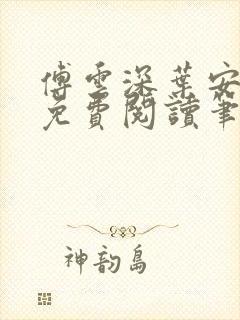 傅雲深葉安
免費閱讀筆
神韵島